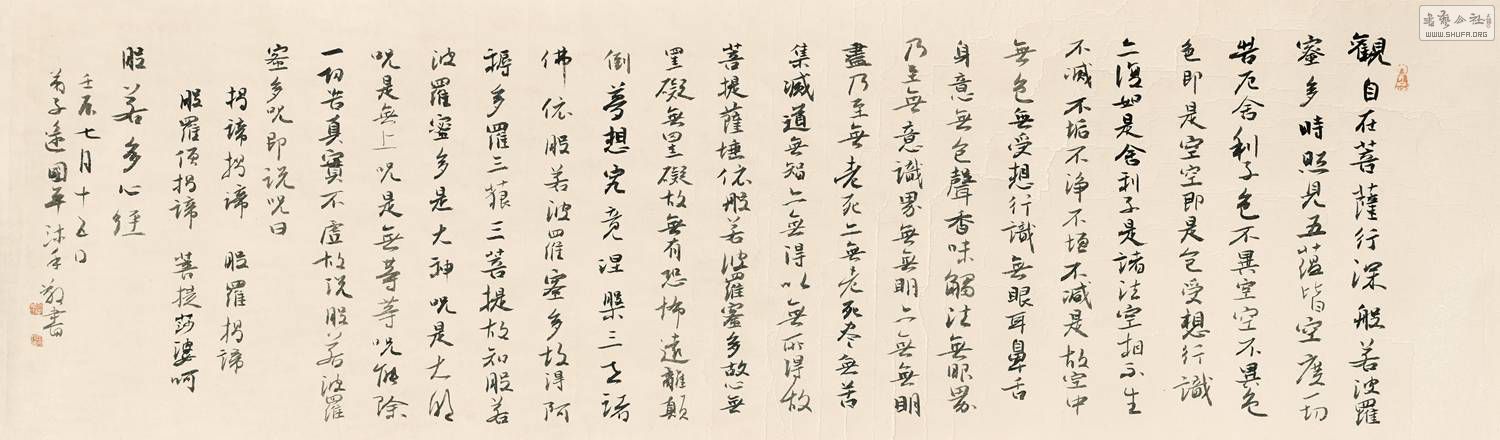 觀自在菩薩行深般若波羅
蜜多時照見五蘊皆空度一切
苦厄舍利子色不異空空不異色
色即是空空即是色受想行識
亦復如是舍利子是諸法空相不生
不滅不垢不淨不增不減是故空中
無色無受想行識無眼耳鼻舌
身意無色聲香味觸法無眼界
乃至無意識界無無明亦無無明
盡乃至無老死亦無老死尽無苦
集滅道無智亦無得以無所得故
菩提薩埵依般若波羅蜜多故心無
罣礙無罣礙故無有恐怖遠離顛
倒夢想究竟涅槃三世諸
佛依般若波羅蜜多故得阿
耨多羅三藐三菩提故知般若
波羅蜜多是大神咒是大明
咒是無上咒是無等等咒能除
一切苦真實不虛故說般若波羅
蜜多咒即說咒曰
揭諦揭諦 般羅揭諦
般羅僧揭諦 菩提莎婆呵
般若多心經
壬辰七月十五日
弟子 國平沐手敬書
書藝公社
WWW.SHUFA.ORG